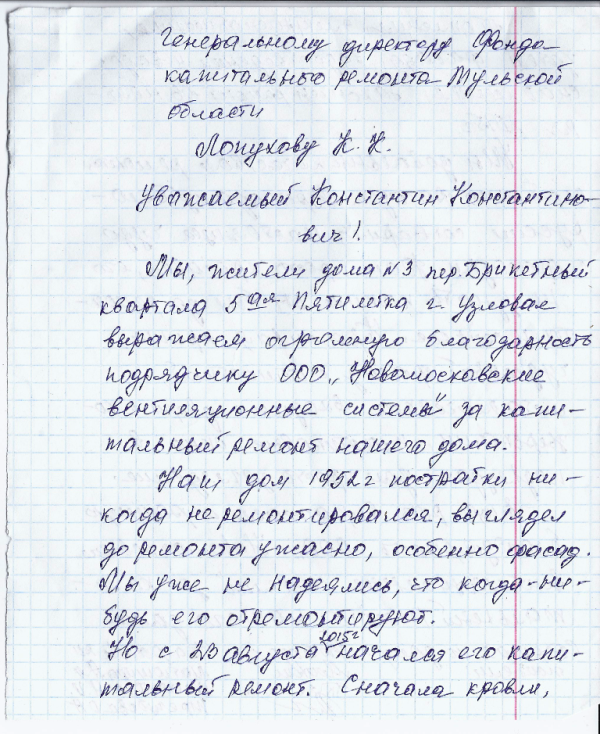 Генеральному директору Фонда
капитального ремонта Тульской
области
Лопухову К. К.
Уважаемый Константин Константино-
вич!
Мы, жители дома №3 пер. Брикетный
квартала 5ая Пятилетка г. Узловая
выражаем огромную благодарность
подрядчику ООО „Новомосковские
вентиляционные системы" за капи-
тальный ремонт нашего дома.
Наш дом 1952г постройки ни-
когда не ремонтировался, выглядел
до ремонта ужасно, особенно фасад.
Мы уже не надеялись, что когда-ни-
будь его отремонтируют.
Но с 23 августа 2015г начался его капи-
тальный ремонт. Сначала кровли,